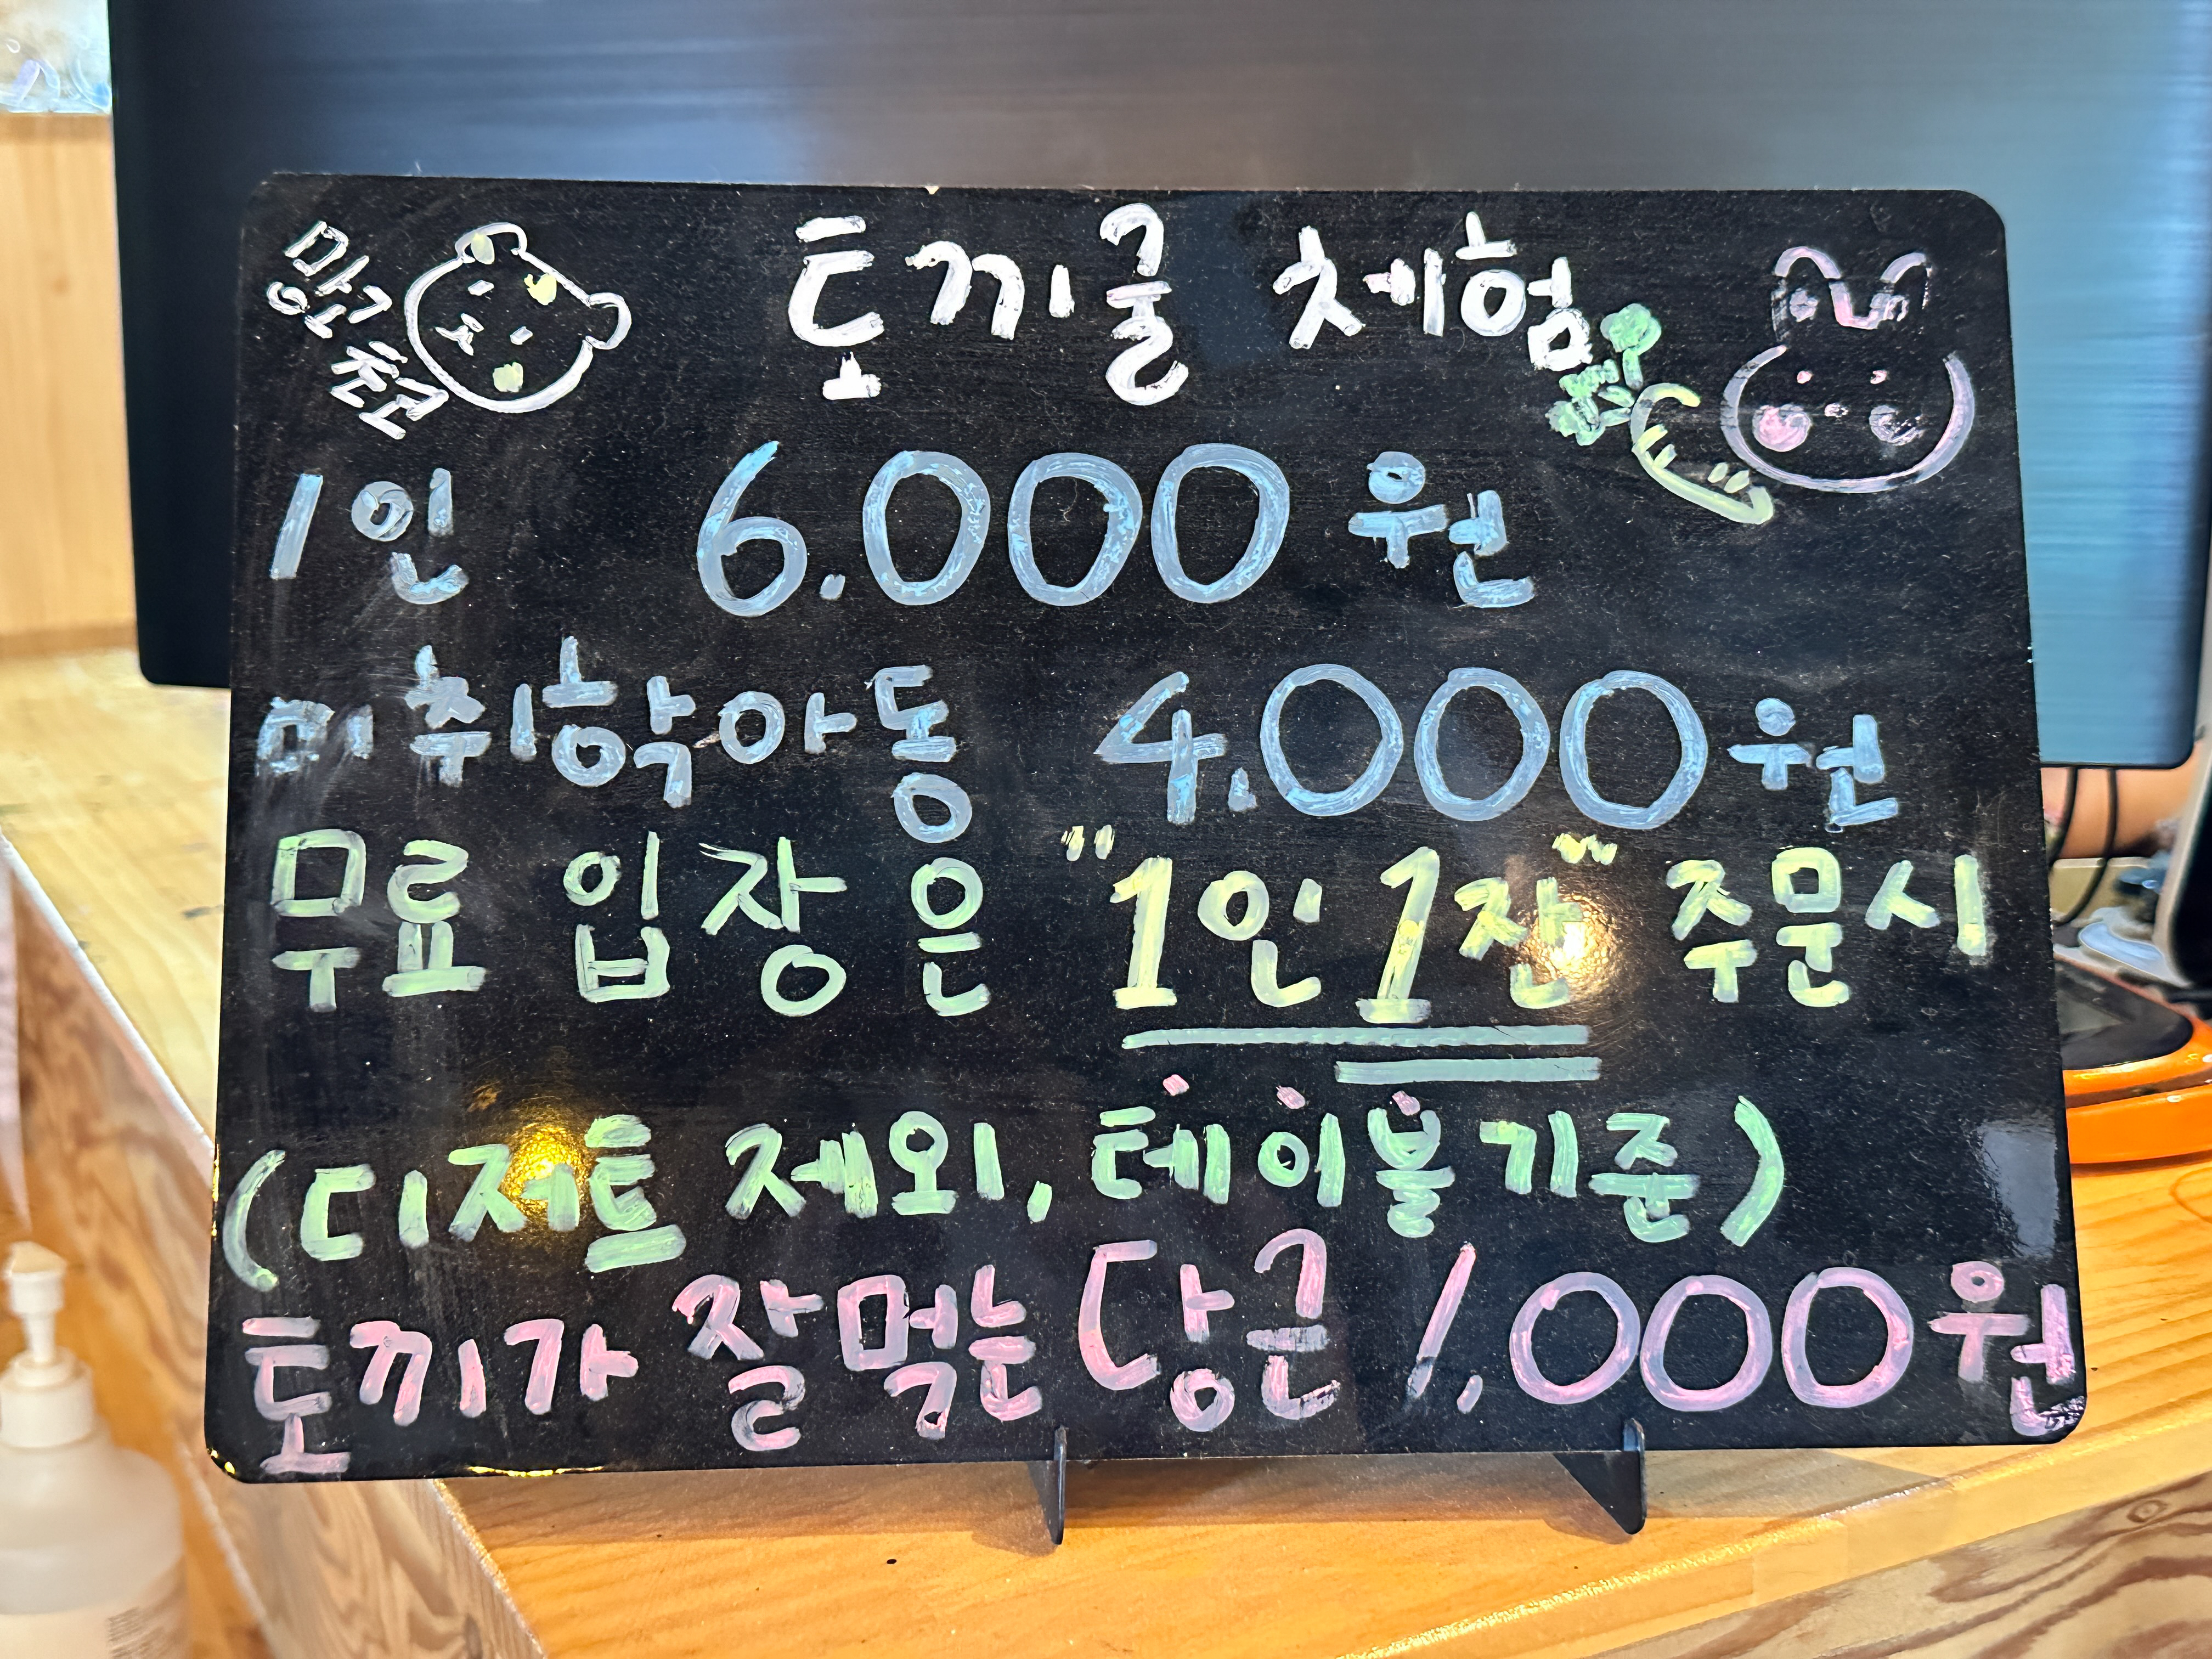 망고
친구
토끼굴 체험
1인 6.000원
미취학아동 4.000원
무료 입장은 "1인 1잔" 주문시
(디저트 제외, 테이블기준)
토끼가 잘먹는 당근 1,000원